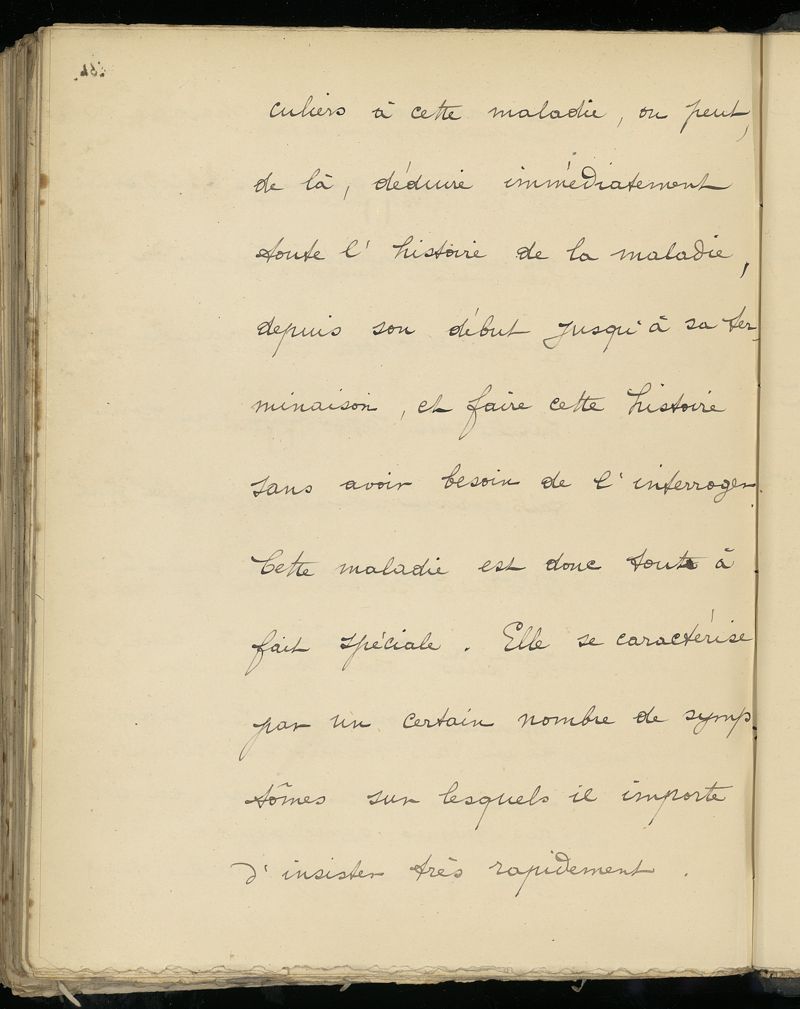 culiers à cette maladie, on peut,
de là, déduire immédiatement
toute l'histoire de la maladie,
depuis son début jusqu'à sa ter-
minaison, et faire cette histoire
sans avoir besoin de l'interroger.
Cette maladie est donc tout à
fait spéciale. Elle se caractérise
par un certain nombre de symp-
tômes sur lesquels il importe
d'insister très rapidement.